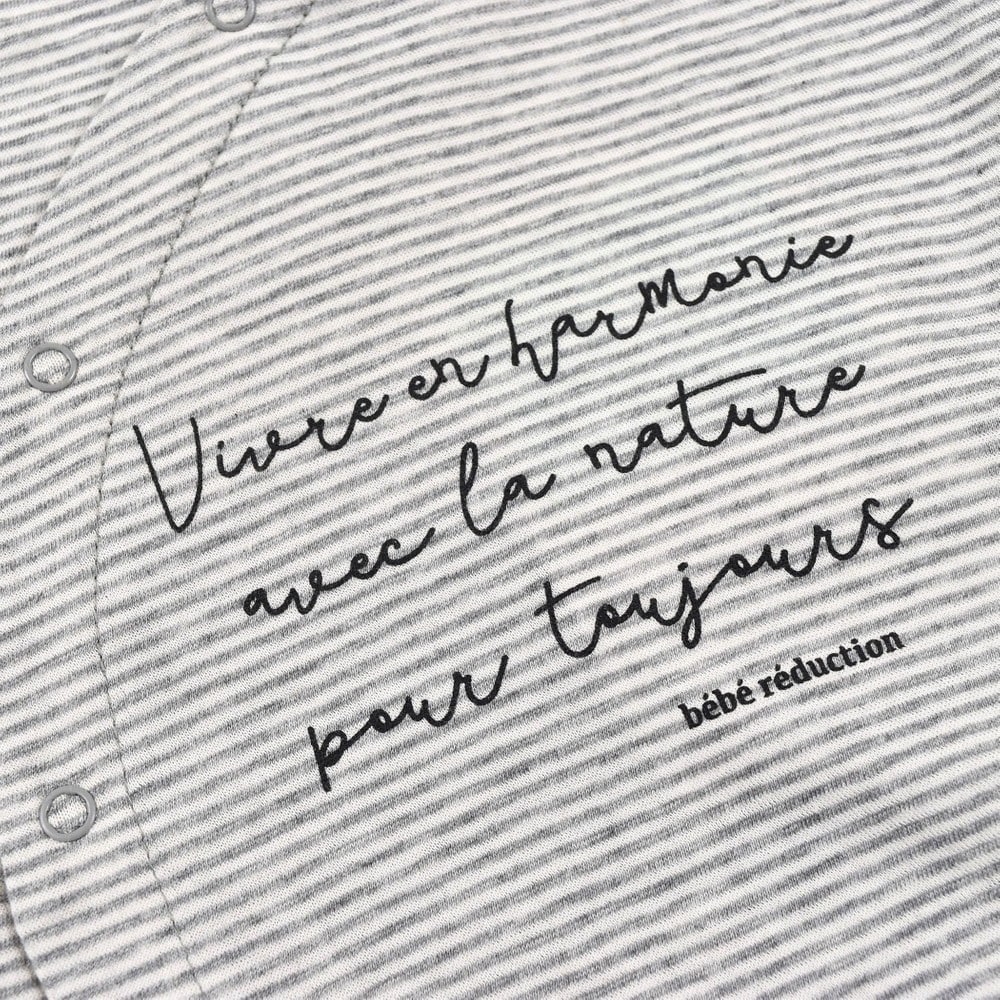 Vivre en harmonie
avec la nature
pour toujours
bébé réduction